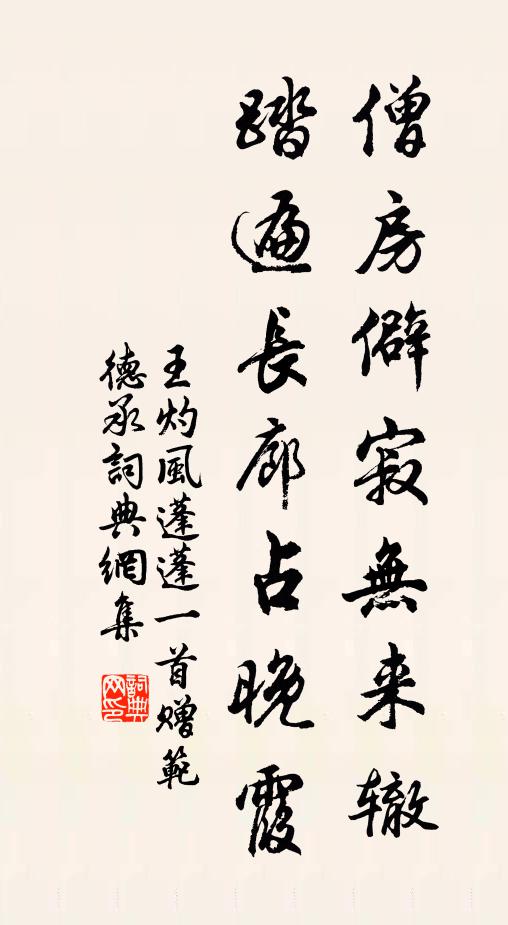 僧房僻寂無来辙
踏遍長廊占晚霞
王灼風蓬蓬一首贈範
德承詞典網集
詞典网印